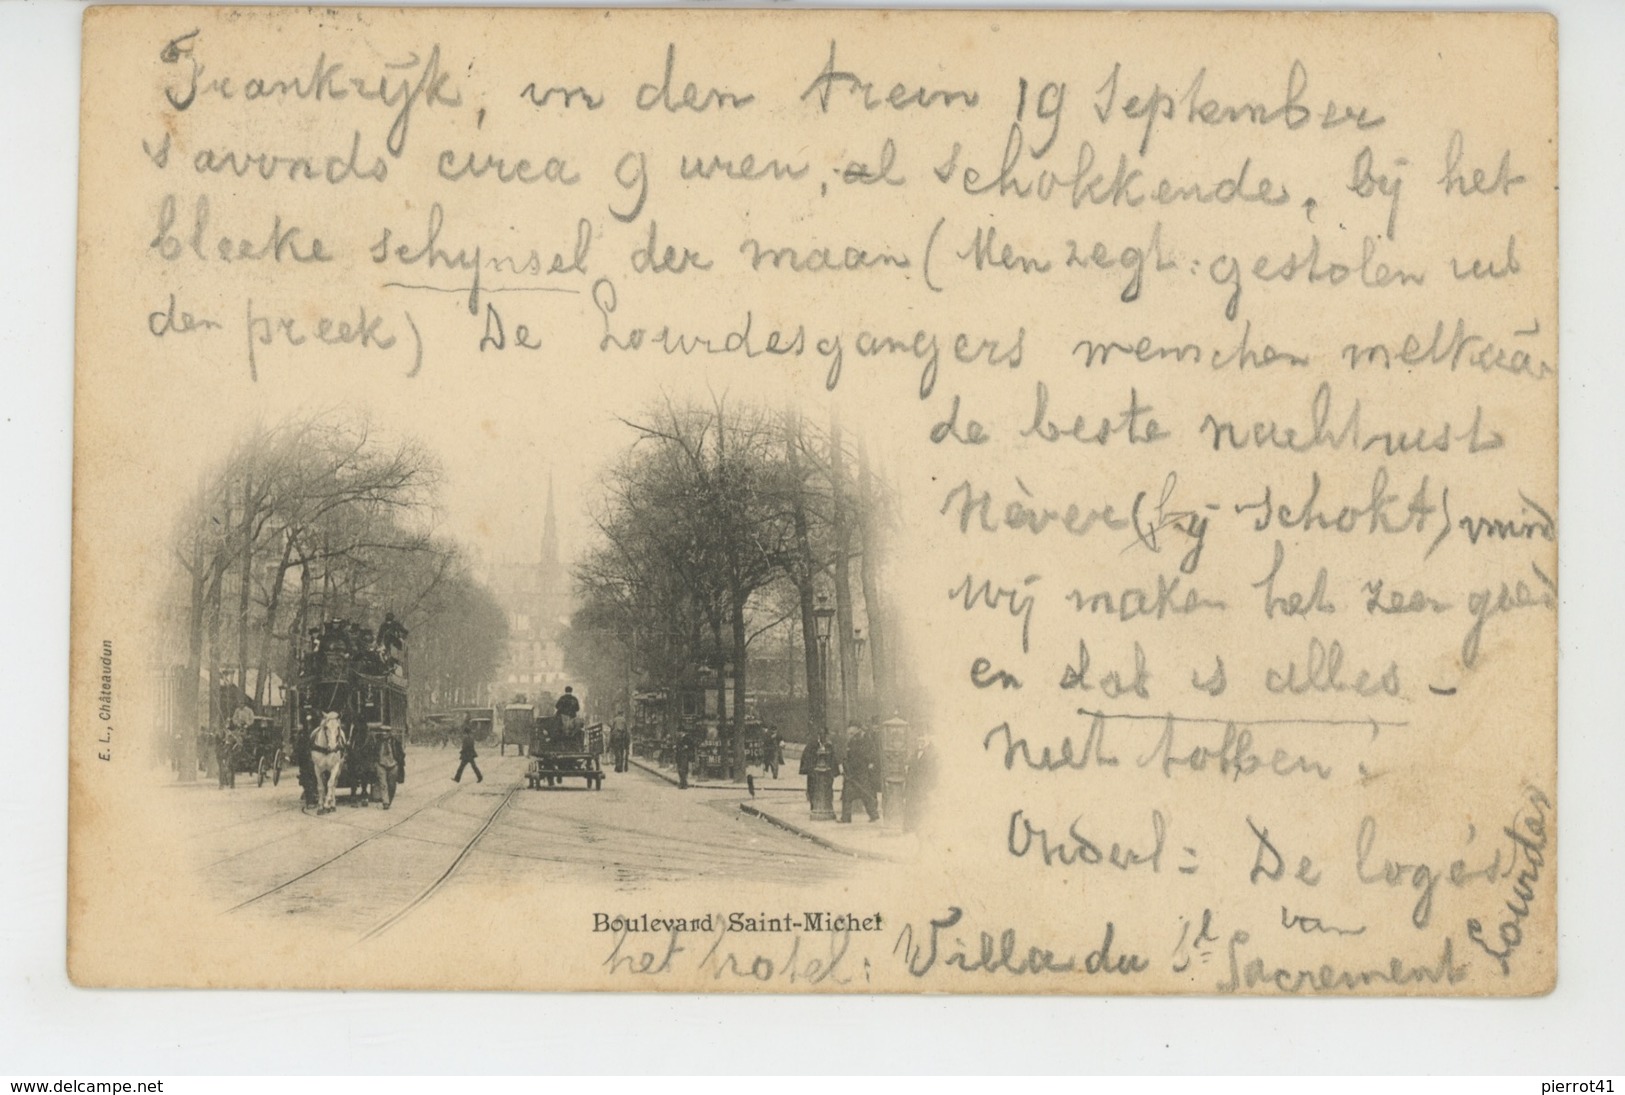 Frankrijk, in den trein 19 September
's avonds circa 9 uren, al schokkende, bij het
bleeke schynsel der maan (Men zegt: gestolen uit
den preek) De Lourdesgangers menschen melkaâr
de beste nachtrust
(bij schokt)
Wij maken het zeer goed
en dat is alles -
Niet tobben!
Onderl: De logés
van
het hotel: Villa du St Sacrement
Lourdes
Boulevard Saint-Michel
E. L., Châteaudun
www.delcampe.net
pierrot41